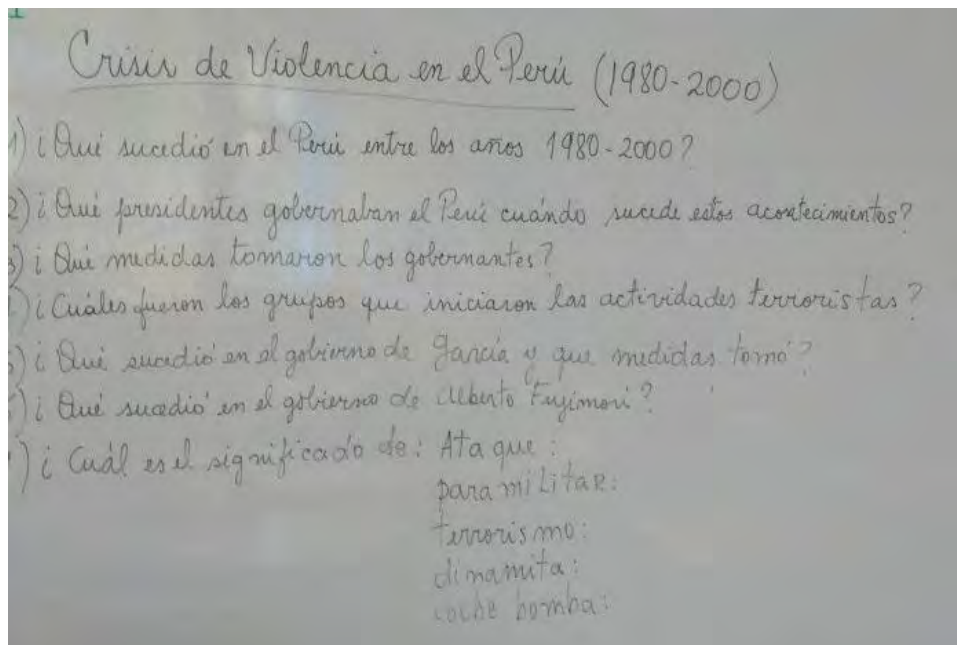 Crisis de Violencia en el Perú (1980-2000)
1) ¿Qué sucedió en el Perú entre los años 1980-2000?
2) ¿Qué presidentes gobernaban el Perú cuándo sucede estos acontecimientos?
3) ¿Qué medidas tomaron los gobernantes?
) ¿Cuáles fueron los grupos que iniciaron las actividades terroristas?
5) ¿Qué sucedió en el gobierno de García y que medidas tomó?
) ¿Qué sucedió en el gobierno de Alberto Fujimori?
) ¿Cuál es el significado de: Ataque:
paramilitar:
terrorismo:
dinamita:
coche bomba: